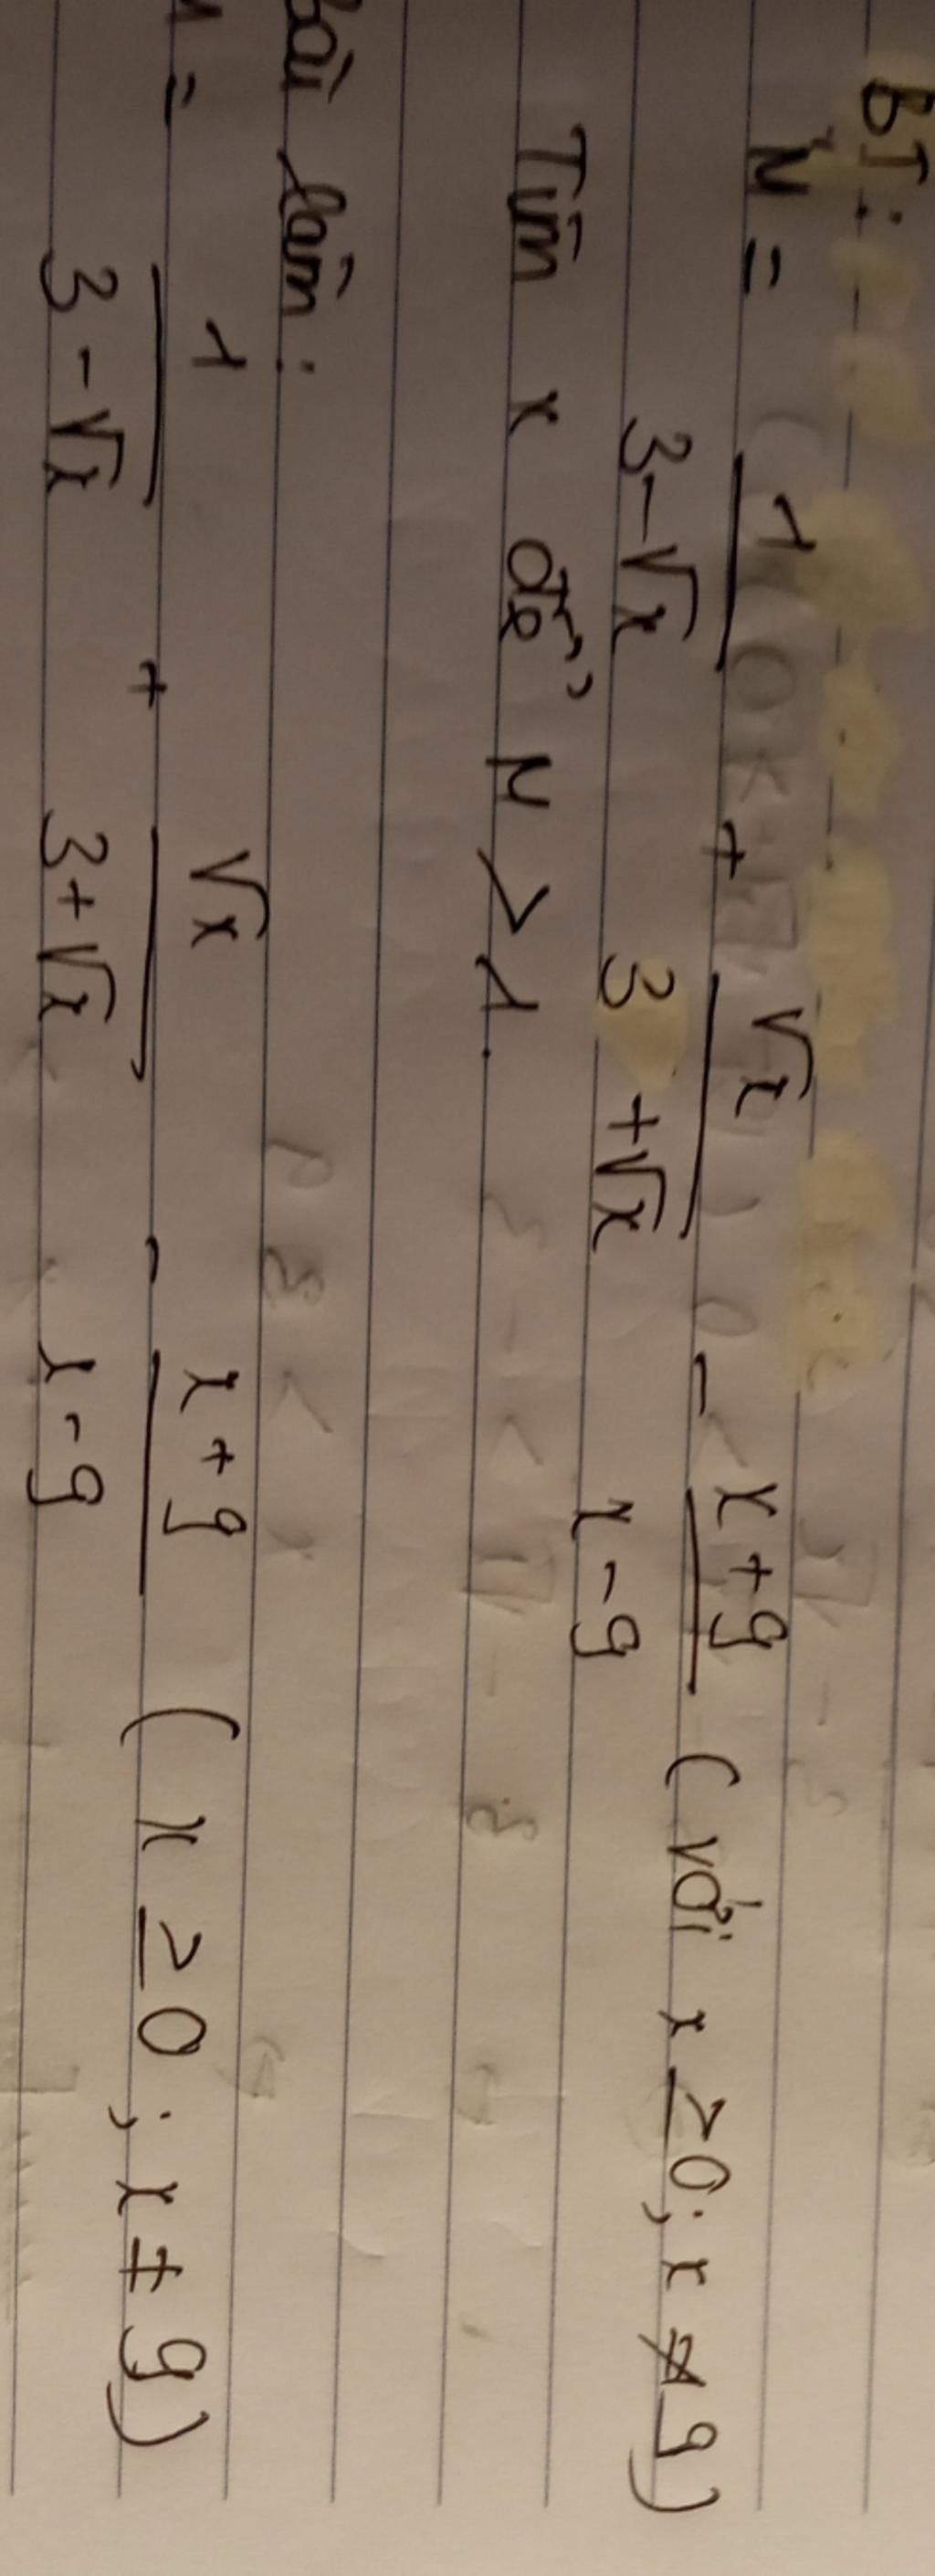 BT:
M = 1/(3-√x) + √x/(3+√x) - (x+9)/(x-9) (với x ≥ 0; x ≠ 9)
Tìm x để M > 1.
Bài làm:
M = 1/(3-√x) + √x/(3+√x) - (x+9)/(x-9) (x ≥ 0; x ≠ 9)